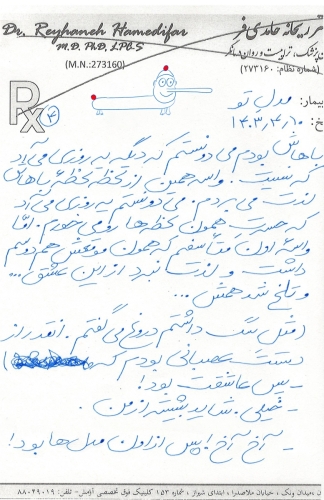 Dr. Reyhaneh Hamedifar
M.D, PhD, LPC-S
(M.N.:273160)
ریحانه حامدی فر
پزشک،
(شماره نظام: ۲۷۳۱۶۰)
Rx ۴
بیمار: مدل تو
خ: ۱۴۰۳،۴،۱۰
باهاش بودم می دونستم که دیگه یه روزی می آد
که نیست. واسه همین از لحظه لحظهٔ باهاش
لذت می بردم. می دونستم یه روزی می آد
که حسرت همون لحظه ها رو می خورم. امّا
واسه اون متأسفم که همون موقعش هم دوسم
داشت و لذت نبرد از این عشق...
و تلخ شد همش...
(مثل سگ داشتم دروغ می گفتم. انقدر از
دستت عصبانی بودم که)
- پس عاشقت بود!
- خیلی. شاید بیشتر از من.
- آخ آخ! پس از اون مدل ها بود!
میدان ونک ، خیابان ملاصدرا ، ابتدای شیراز ، شماره ۱۵۳ کلینیک فوق تخصصی آرامش - تلفن: ۸۸۰۴۹۰۱۹